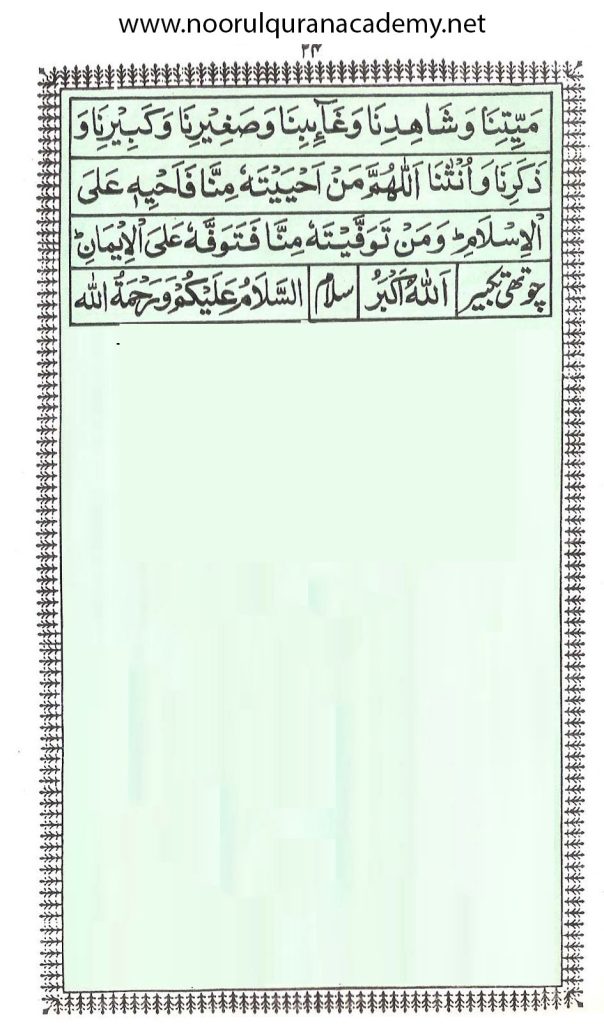 www.noorulquranacademy.net
۲۴
مَيِّتِنَا وَشَاهِدِنَا وَغَآئِبِنَا وَصَغِيْرِنَا وَكَبِيْرِنَا وَ
ذَكَرِنَا وَاُنْثٰنَا اَللّٰهُمَّ مَنْ اَحْيَيْتَهٗ مِنَّا فَاَحْيِهٖ عَلَى
الْاِسْلَامِ ؕ وَمَنْ تَوَفَّيْتَهٗ مِنَّا فَتَوَفَّهٗ عَلَى الْاِيْمَانِ ؕ
چوتھی تکبیر اَللّٰهُ اَكْبَرُ سلام اَلسَّلَامُ عَلَيْكُمْ وَرَحْمَةُ اللّٰه